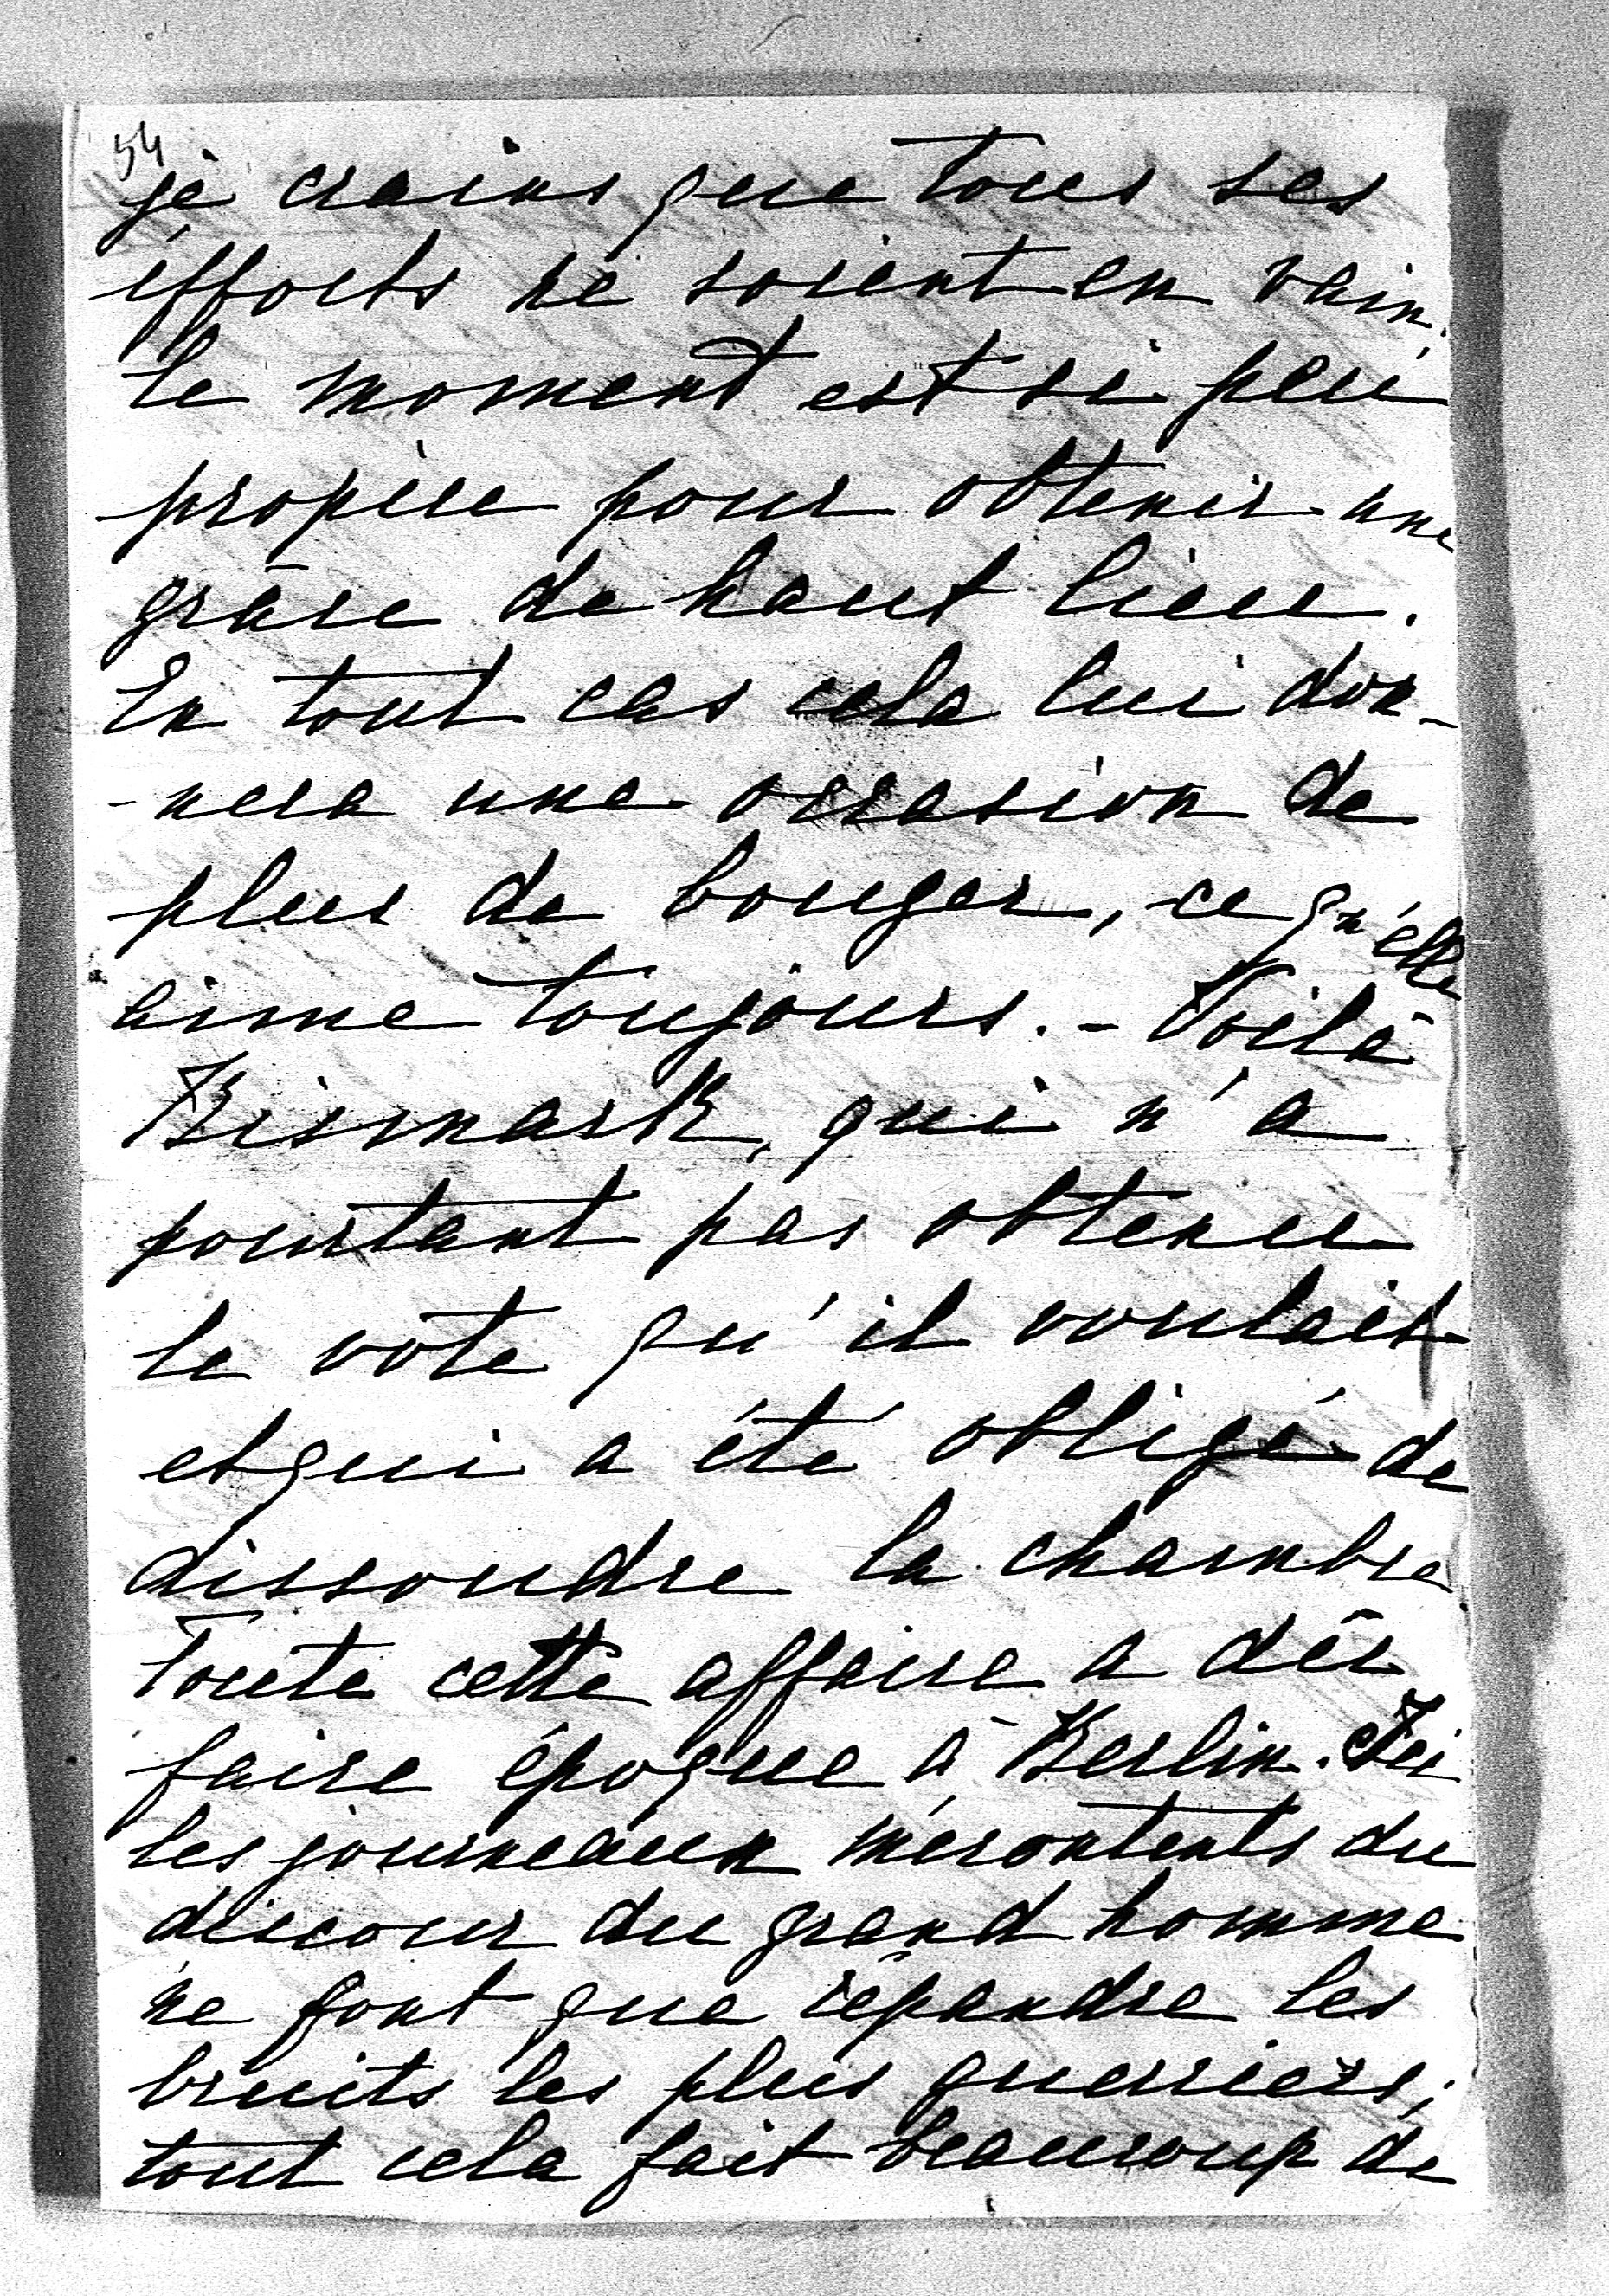 54
je crains que tous ses
éfforts ne soient en vain.
le moment est si peu
propice pour obtenir une
grâce de haut lieu.
En tout cas cela lui don-
-nera une occasion de
plus de bouger, ce qu'elle
aime toujours. - Voilà
Bismark, qui n'a
pourtant pas obtenu
le vote qu'il voulait
et qui a été obligé de
dissoudre la chambre
Toute cette affaire a dû
faire époque à Berlin. Ici
les journeaux mécontents du
discour du grand homme
ne font que répandre les
bruits les plus guerriers;
tout cela fait beaucoup de